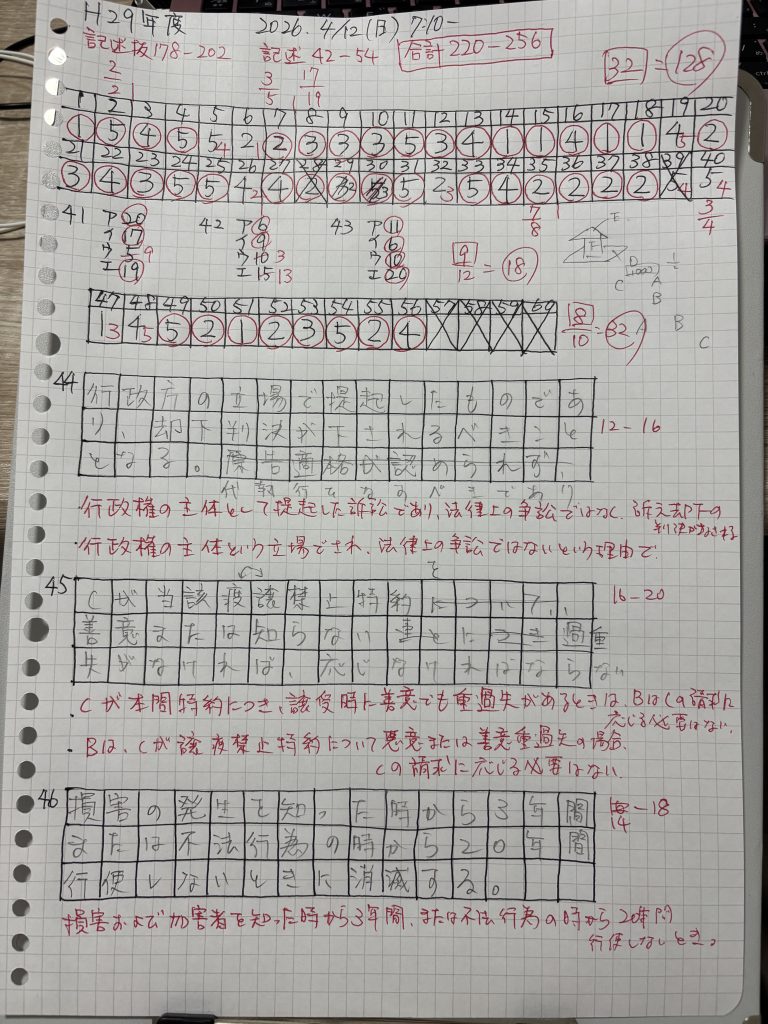 H29年度 2026. 4/12(日) 7:10-
記述抜178-202 記述 42-54 合計 220-256
32 = 128
2/2 3/5 17/19
1 2 3 4 5 6 7 8 9 10 11 12 13 14 15 16 17 18 19 20
1 5 4 5 5 4 2 1 2 3 3 3 5 3 4 1 1 4 1 1 4 5 2
21 22 23 24 25 26 27 28 29 30 31 32 33 34 35 36 37 38 39 40
3 4 3 5 5 4 2 4 5 2 3 5 4 2 2 2 2 4 5 4
7/8 3/4
41 ア20 42 ア6 43 ア11
イ17 イ9 イ6
ウ5 9 ウ10 3 ウ10
エ19 エ15 13 エ20
9/12 = 18
47 48 49 50 51 52 53 54 55 56 57 58 59 60
1 3 4 5 5 2 1 2 3 5 2 4
8/10 = 32
44 行政庁の立場で提起したものであ
り、却下判決が下されるべきこと 12-16
となる。原告適格が認められず、
代執行でなすべきであり
・行政権の主体として提起した訴訟であり、法律上の争訟ではなく、訴え却下の
判決がなされる
・行政権の主体という立場でされ、法律上の争訟ではないという理由で
45 Cが当該疫譲禁止特約について、 を 16-20
善意または知らない重とにつき過重
失がなければ、応じなければならない
・Cが本問特約につき、譲受時に善意でも重過失があるときは、BはCの請求に
応じる必要はない。
・Bは、Cが譲渡禁止特約について悪意または善意重過失の場合、
Cの請求に応じる必要はない。
46 損害の発生を知った時から3年間 14-18
または不法行為の時から20年間
行使しないときに消滅する。
損害および加害者を知った時から3年間、または不法行為の時から20年間
行使しないとき。